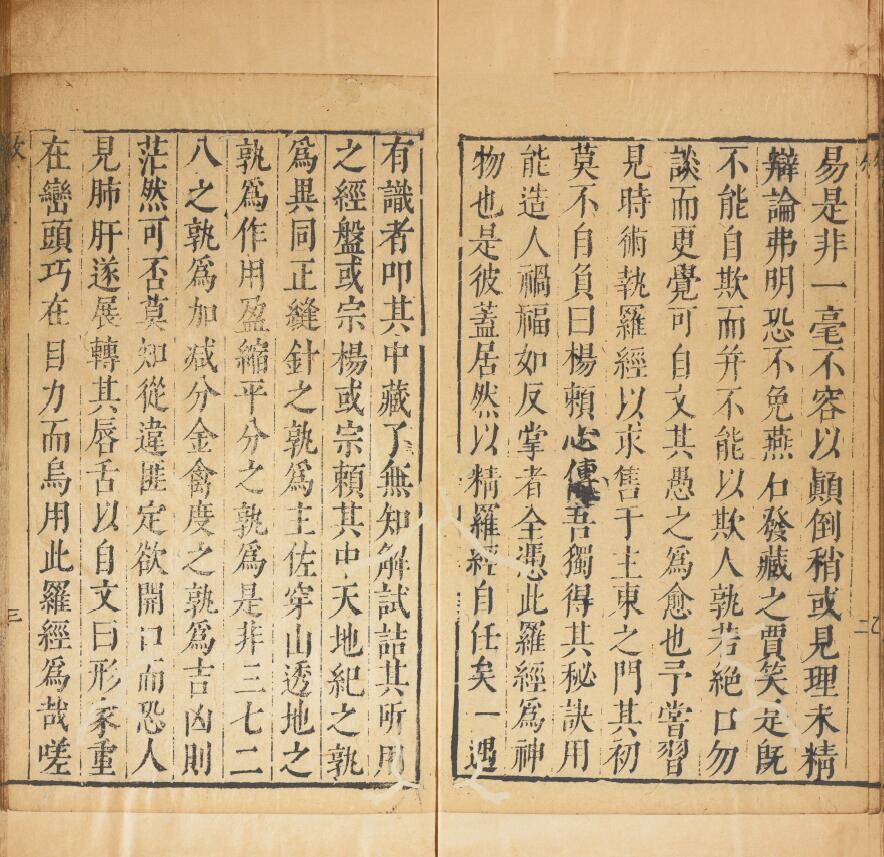 易是非一毫不容以顚倒稍或見理未精
辯論弗明恐不免燕石發藏之賈笑是旣
不能自欺而幷不能以欺人孰若絕口勿
談而更覺可自文其愚之爲愈也予嘗習
見時術執羅經以求售于主東之門其初
莫不自負曰楊賴心傳吾獨得其秘訣用
能造人禍福如反掌者全憑此羅經爲神
物也是彼蓋居然以精羅經自任矣一遇
二
有識者叩其中藏了無知解試詰其所用
之經盤或宗楊或宗賴其中天地紀之孰
爲異同正縫針之孰爲主佐穿山透地之
孰爲作用盈縮平分之孰爲是非三七二
八之孰爲加減分金禽度之孰爲吉凶則
茫然可否莫知從違匪定欲開口而恐人
見肺肝遂展轉其唇舌以自文曰形家重
在巒頭巧在目力而烏用此羅經爲哉嗟
三